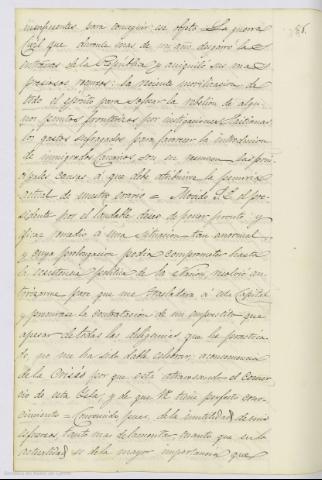 insuficientes para conseguir su objeto = La guerra
Civil que durante mas de un año desgarró las
entrañas de la República y aniquiló sus mas
preciosos ramos; la reciente movilizacion de
todo el ejército para sofocar la rebelion de algu-
nos puntos fronterizos por instigaciones
los gastos sufragados para favorecer la introduccion
de inmigrados Canarios, son en resumen las prin-
cipales causas á que debe atribuirse la penuria
actual de nuestro erario = Movido S. E. el pre-
sidente por el laudable deseo de poner pronto y
eficaz remedio á una situacion tan anormal
y cuya prolongacion podia comprometer hasta
la existencia política de la Nacion, resolvió au-
torizarme para que me trasladara á esta Capital
y promoviera la contratacion de un empréstito que
apesar de todas las diligencias que he practica-
do, no me ha sido dable celebrar, á consecuencia
de la Crisis por que está atravesando el Comer-
cio de esta Isla, y de que VE tiene perfecto cono-
cimiento = Convencido pues, de la inutilidad de mis
esfuerzos, tanto mas de lamentar, cuanto que en la
actualidad es de la mayor importancia que